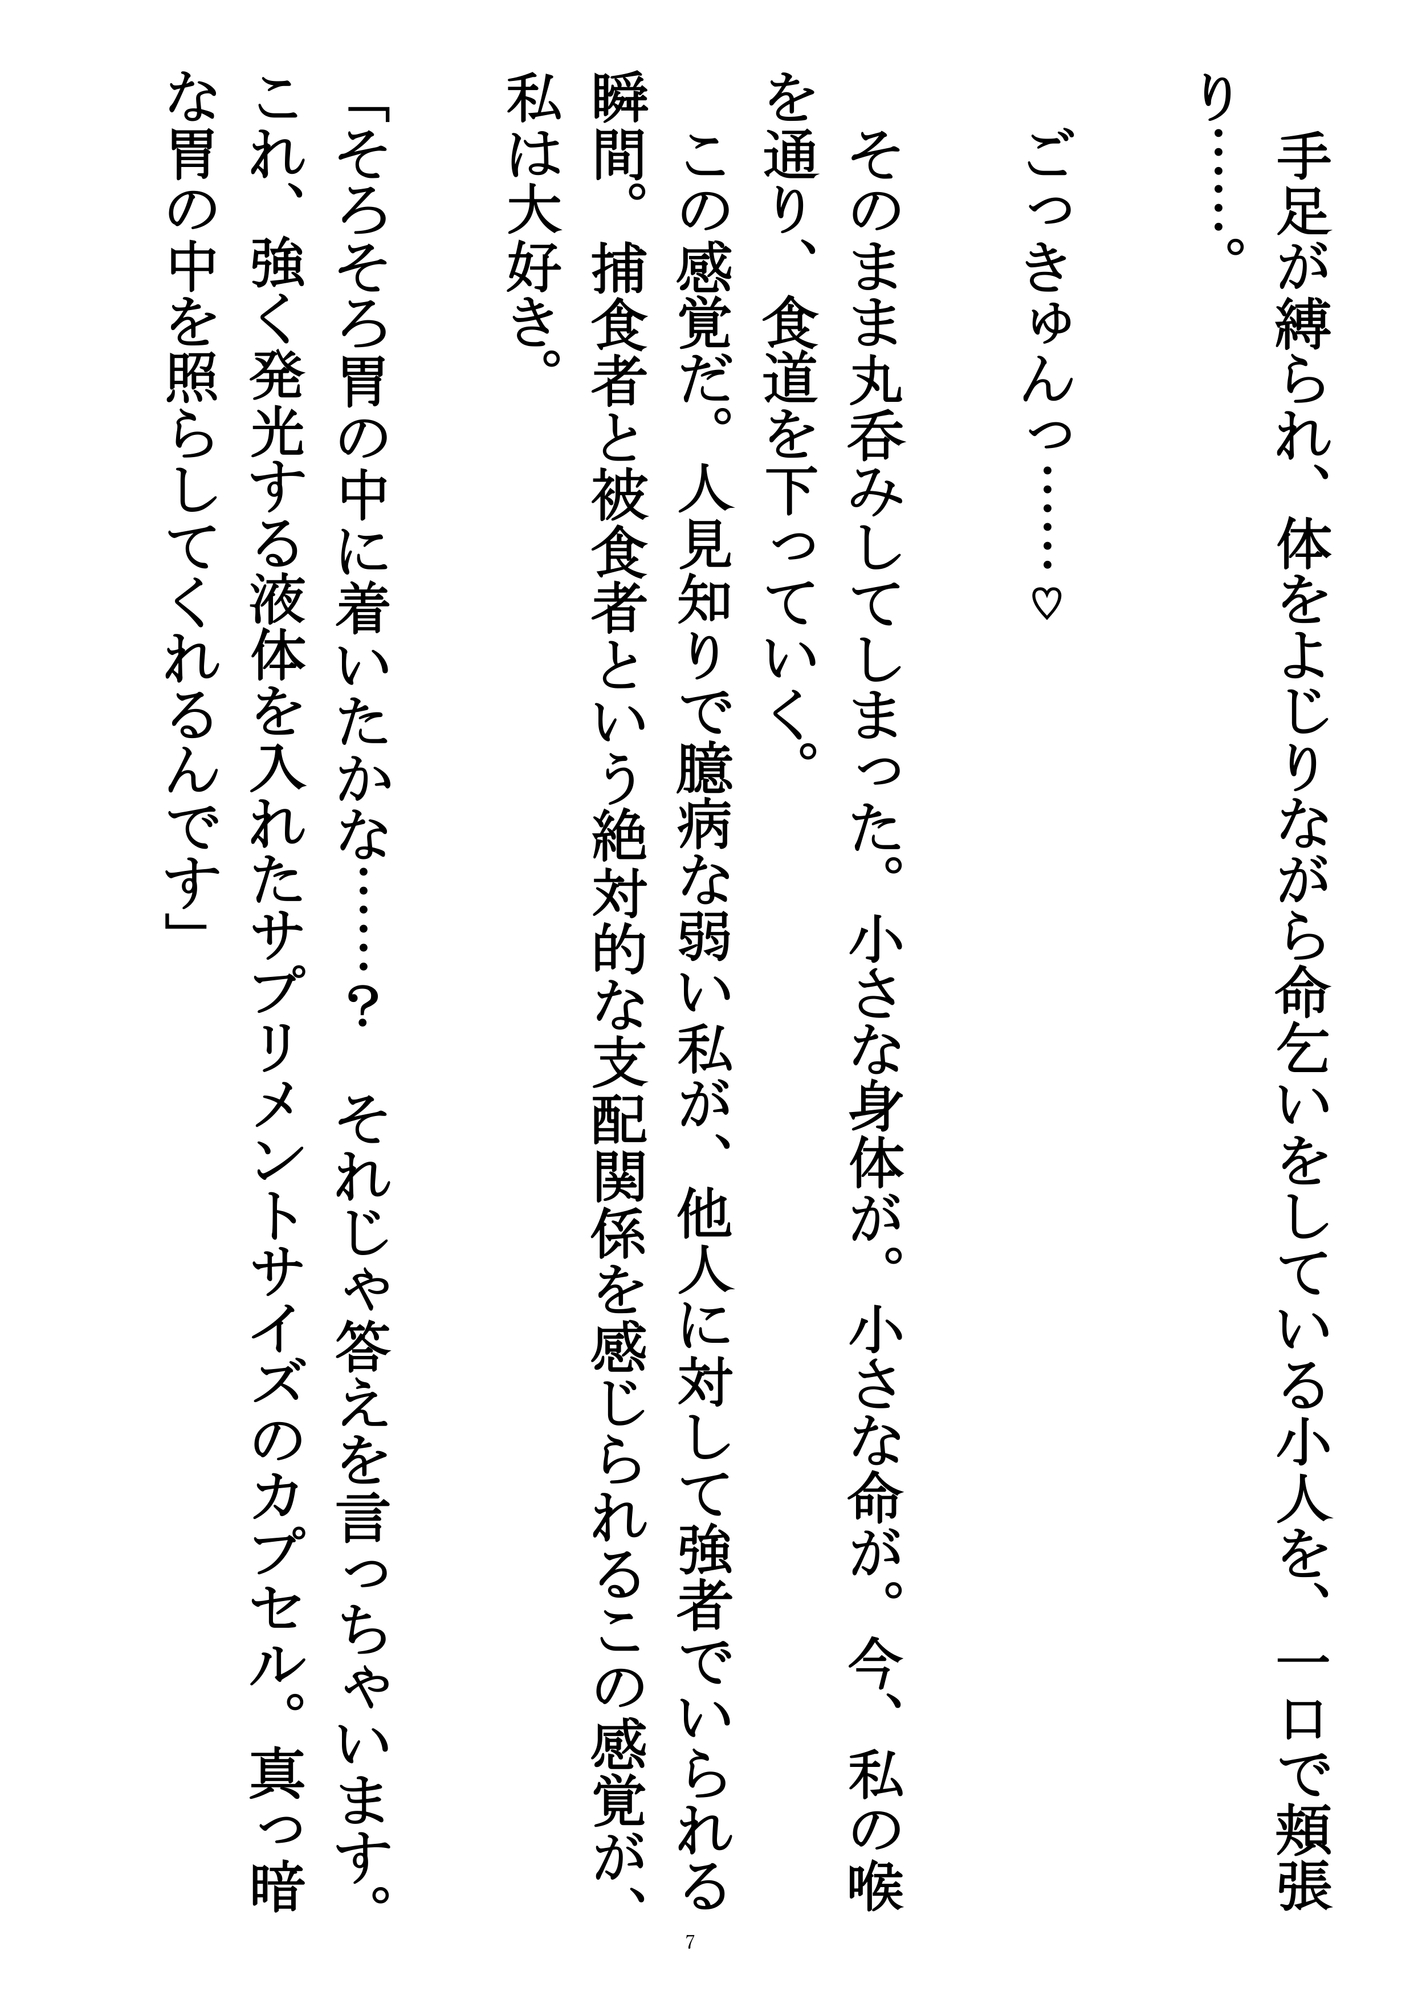 手足が縛られ、体をよじりながら命乞いをしている小人を、一口で頬張
り……。
　ごっきゅんっ……♡
　そのまま丸呑みしてしまった。小さな身体が。小さな命が。今、私の喉
を通り、食道を下っていく。
　この感覚だ。人見知りで臆病な弱い私が、他人に対して強者でいられる
瞬間。捕食者と被食者という絶対的な支配関係を感じられるこの感覚が、
私は大好き。
「そろそろ胃の中に着いたかな……？　それじゃ答えを言っちゃいます。
これ、強く発光する液体を入れたサプリメントサイズのカプセル。真っ暗
な胃の中を照らしてくれるんです」
7